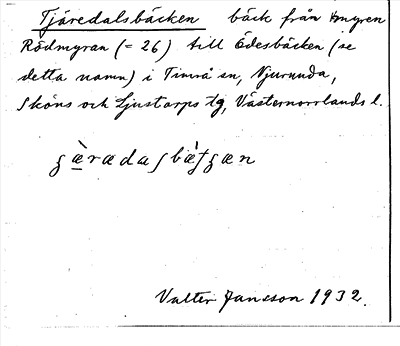 Tjäredalsbäcken bäck från myren
Rödmyran (= 26) till Ödesbäcken (se
detta namn) i Timrå sn, Njurunda,
Sköns och Ljustorps tg, Västernorrlands l.
Valter Jansson 1932.